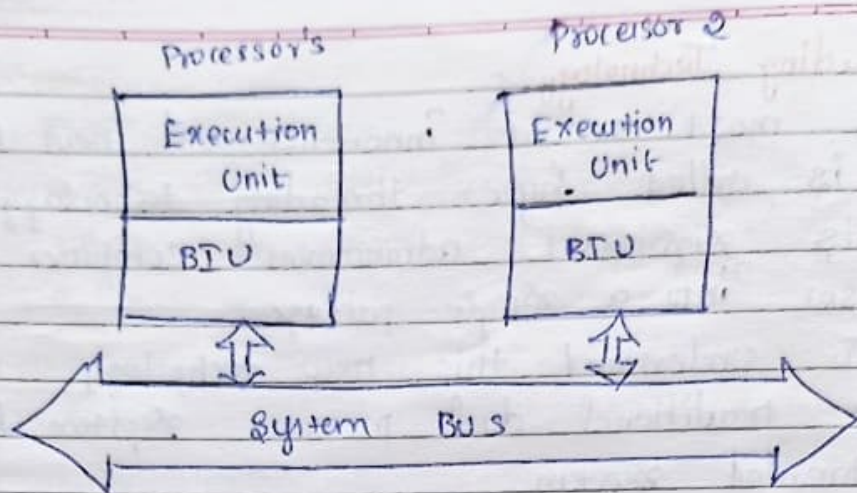 Processor's
Processor 2
Execution
Unit
Execution
Unit
BIU
BIU
System BUS